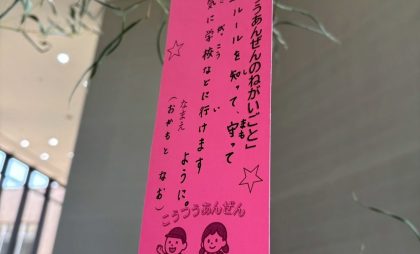 うあんぜんのねがいごと」
ルールを知って、守って
気に学校などに行けます
ように。
なまえ
(おかもと なお)
こうつうあんぜん